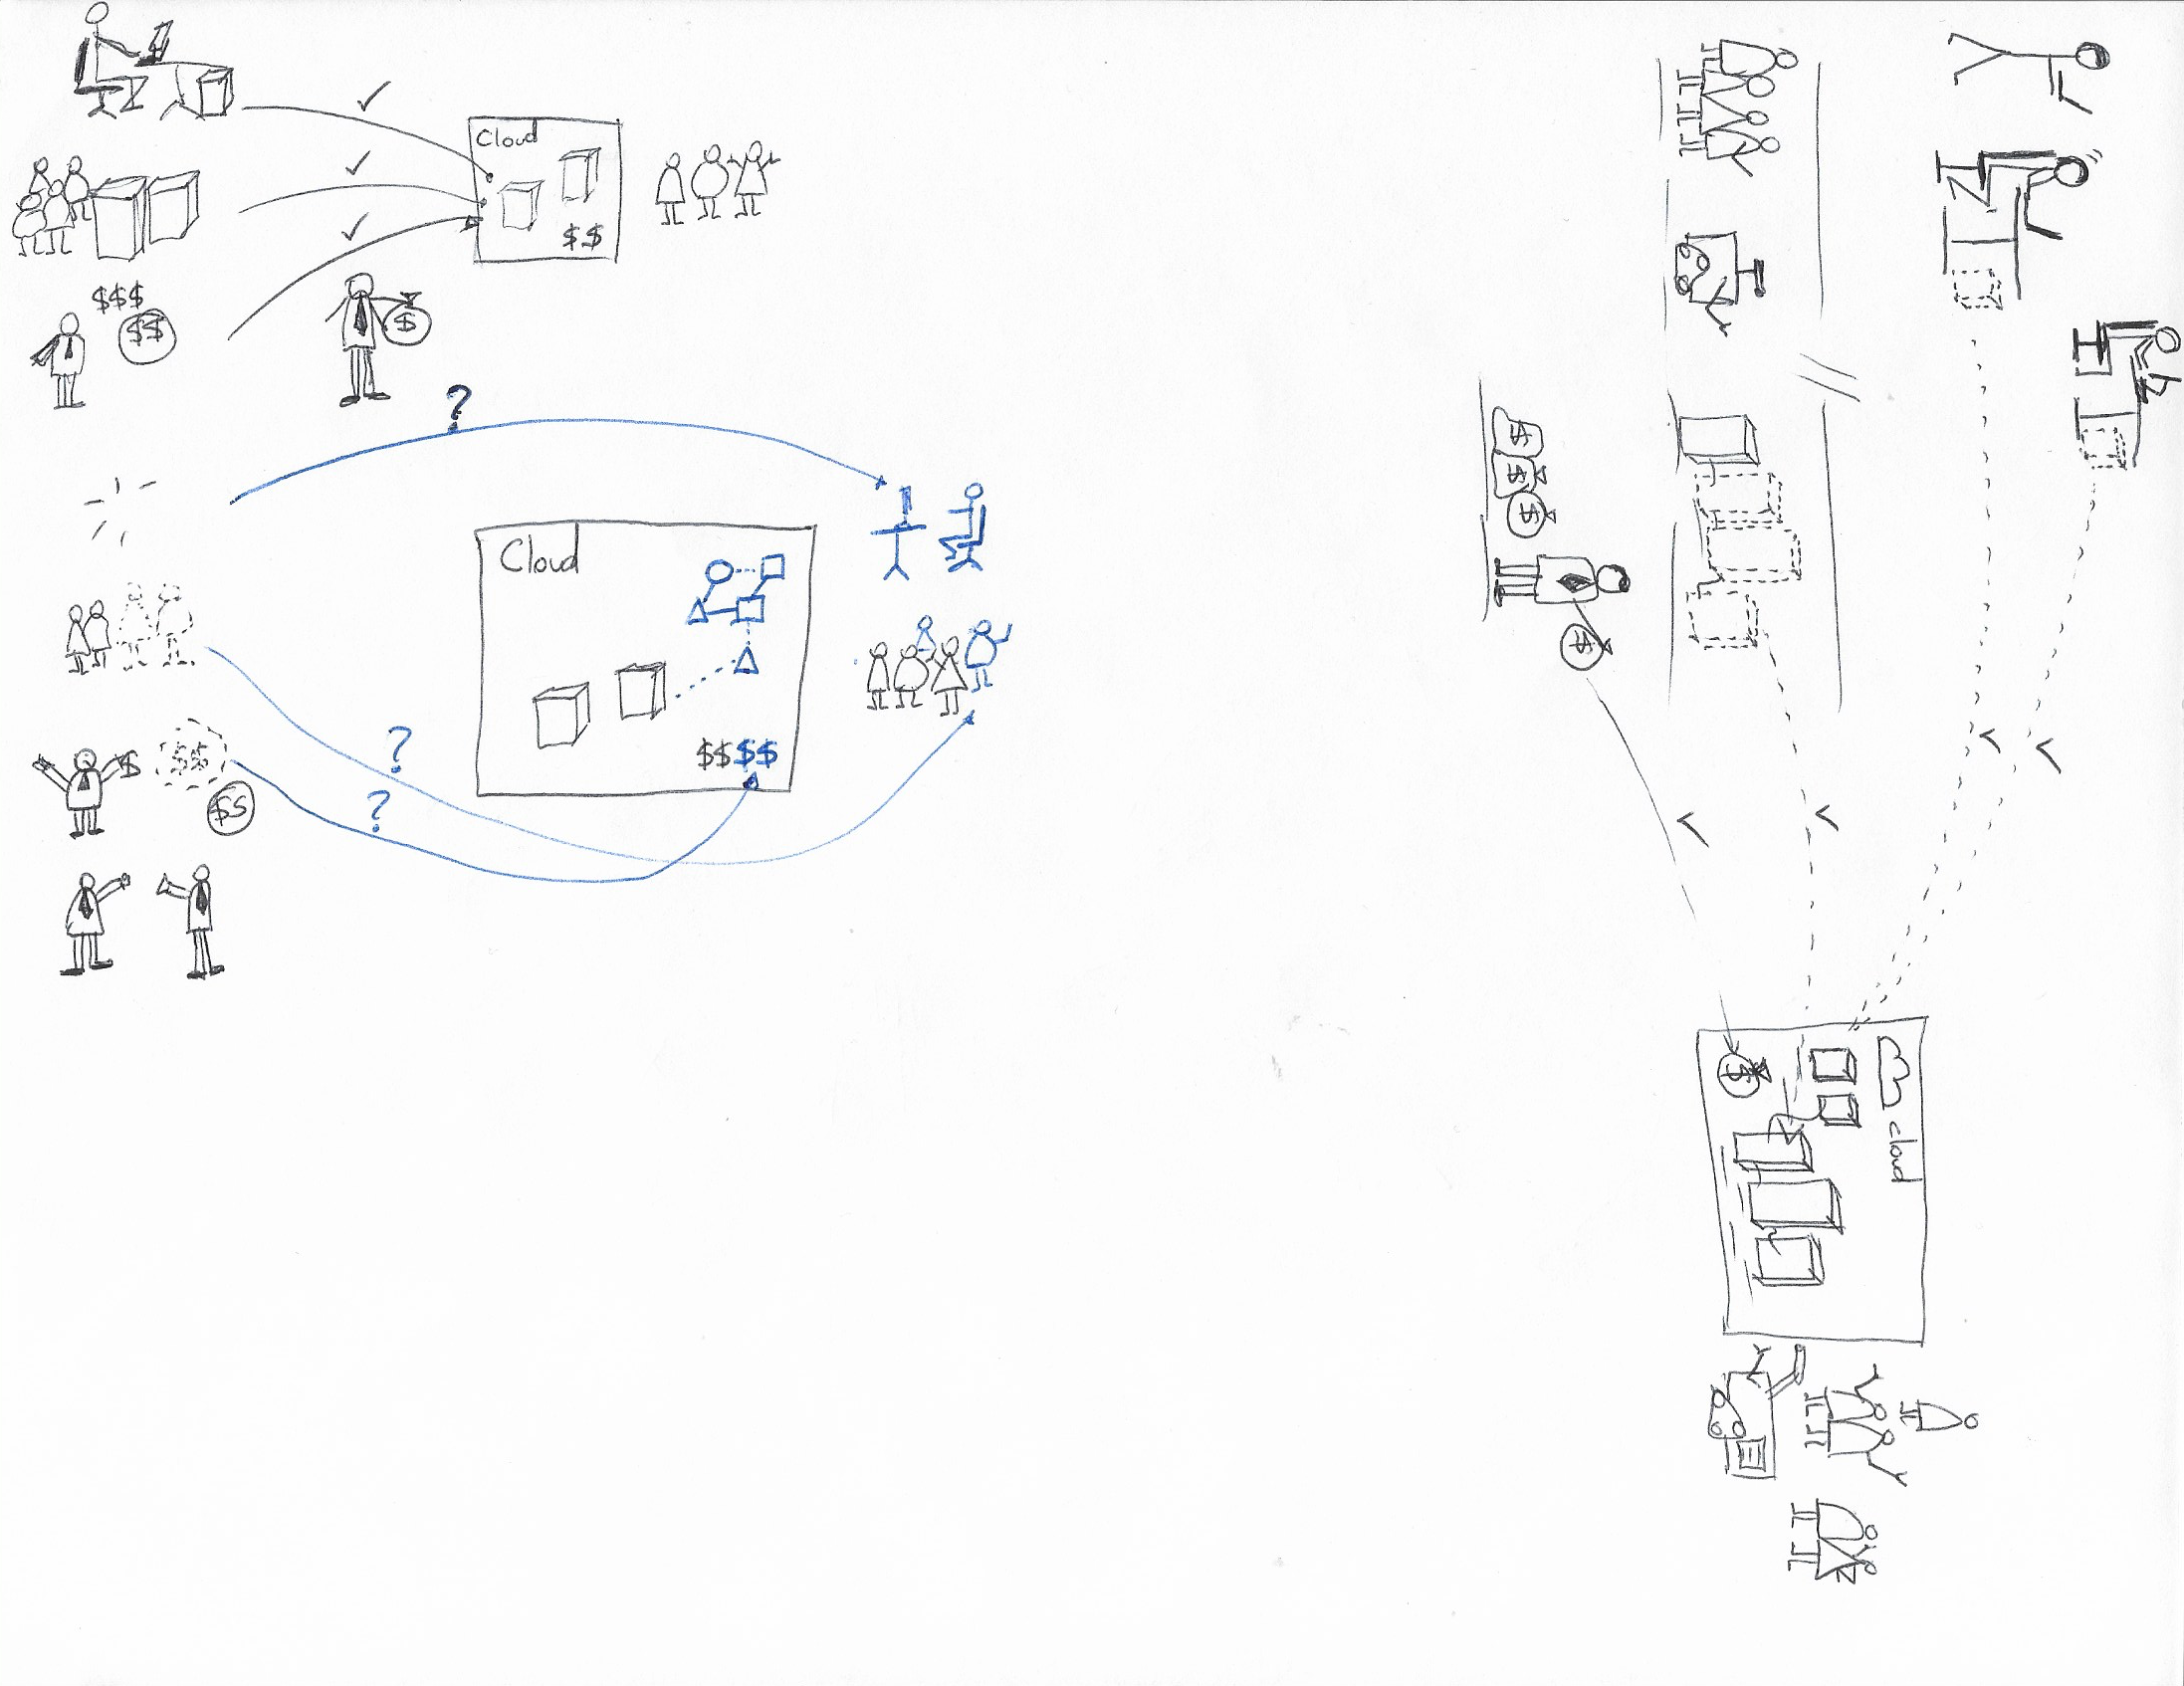 Cloud
$$
$$$
$$
$
?
Cloud
$ $$
$$
?
$$$$
?
$
$
$
$
$
cloud